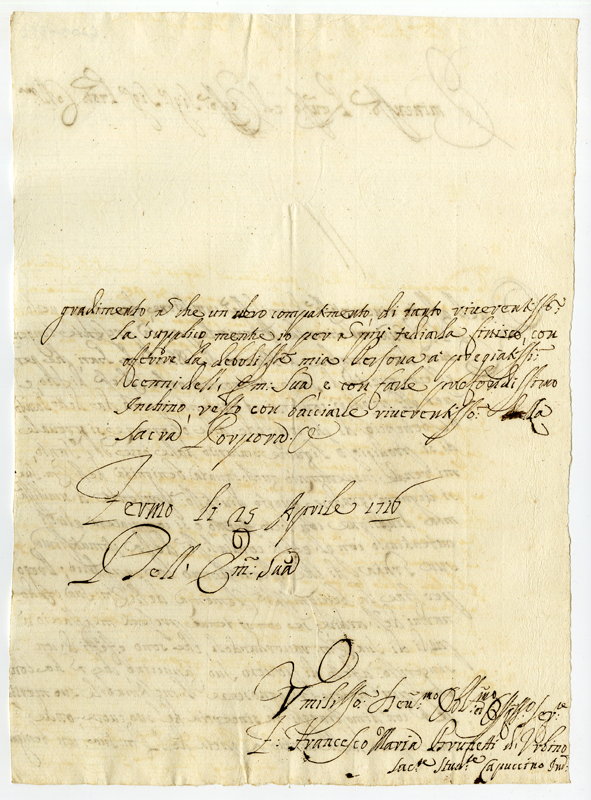 gradimento ñ che un vero compatimento, di tanto riverentissᵒ:
la supplico mentre io per ñ più tediarla finisco, con
offerire la debolissᵃ mia Persona a' pregiatissi:
cenni dell' Em: Sua, e con farle profondissimo
Inchino, resto con bacciarle riverentissᵒ: della
Sacra Porpora
Fermo li 25 Aprile 1716
Dell' Em: Sua
Umilissᵒ. Devᵐᵒ Obblᵐᵒ Serᵉ
F. Francesco Maria Brunetti di Urbino
Sacᵗᵉ Studᵗᵉ Capuccino Ind: